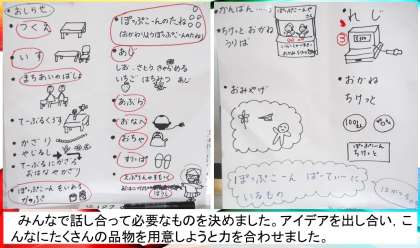 おしらせ
つくえ
いす
まちあいのばしょ
てーぶるくろす
かざり
やじるし
てーぶるにかざる
おはなかざり
ぽっぷこーんをいれる
かっぷ
ぽっぷこーんのたね
(おかわりようぽっぷこーんのたね)
あじ
しお、さとう きゃらめる
いちご はちみつ あじ
あぶら
おなべ
おちゃ
すりっぱ
かんばん
ちけっと おかね
うりば
おみやげ
ぽっぷこーん ぱーてぃーに
いるもの
れじ
おかね
ちけっと
ぽっぷこーん
ちけっと
みんなで話し合って必要なものを決めました。アイデアを出し合い，こ
んなにたくさんの品物を用意しようと力を合わせました。